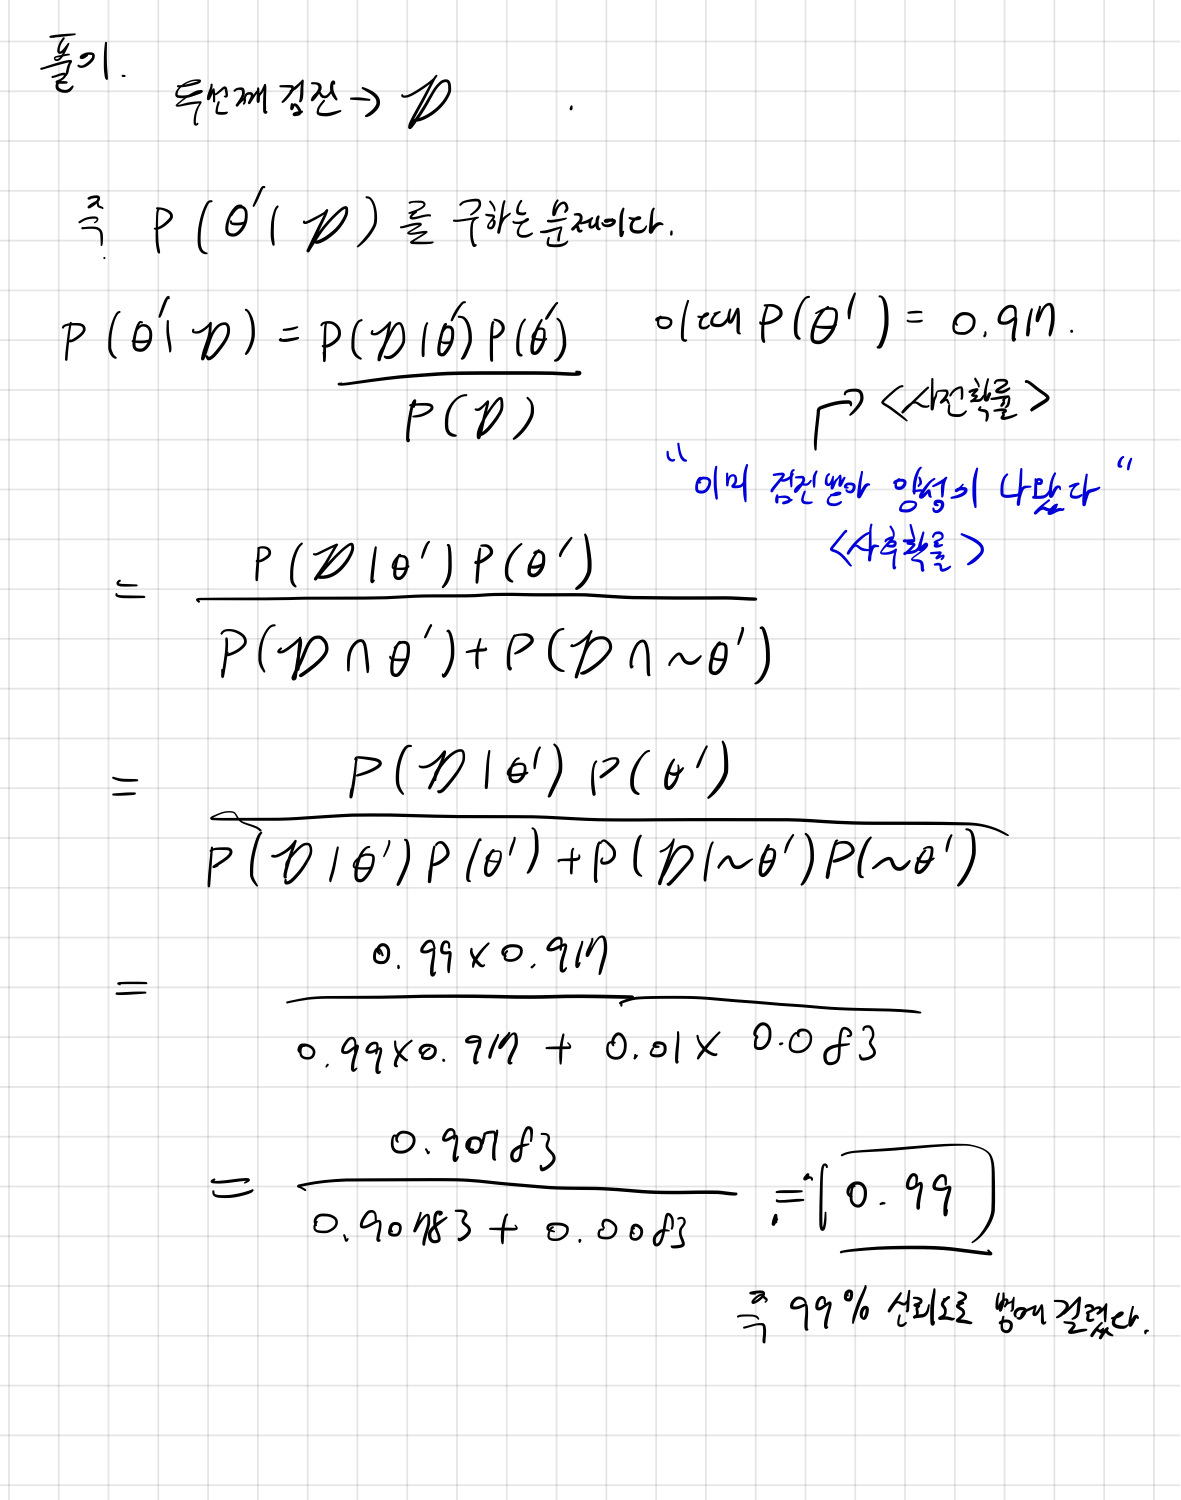 풀이.
두번째 검진 → D
즉 P(θ'|D)를 구하는 문제이다.
P(θ'|D) = P(D|θ')P(θ') / P(D)
이때 P(θ') = 0.917.
<사전확률>
"이미 검진받아 양성이 나왔다"
<사후확률>
= P(D|θ')P(θ') / P(D∩θ')+P(D∩~θ')
= P(D|θ')P(θ') / P(D|θ')P(θ')+P(D|~θ')P(~θ')
= 0.99×0.917 / 0.99×0.917 + 0.01×0.083
= 0.90783 / 0.90783 + 0.0083 ≒ 0.99
즉 99% 신뢰도로 병에 걸렸다.